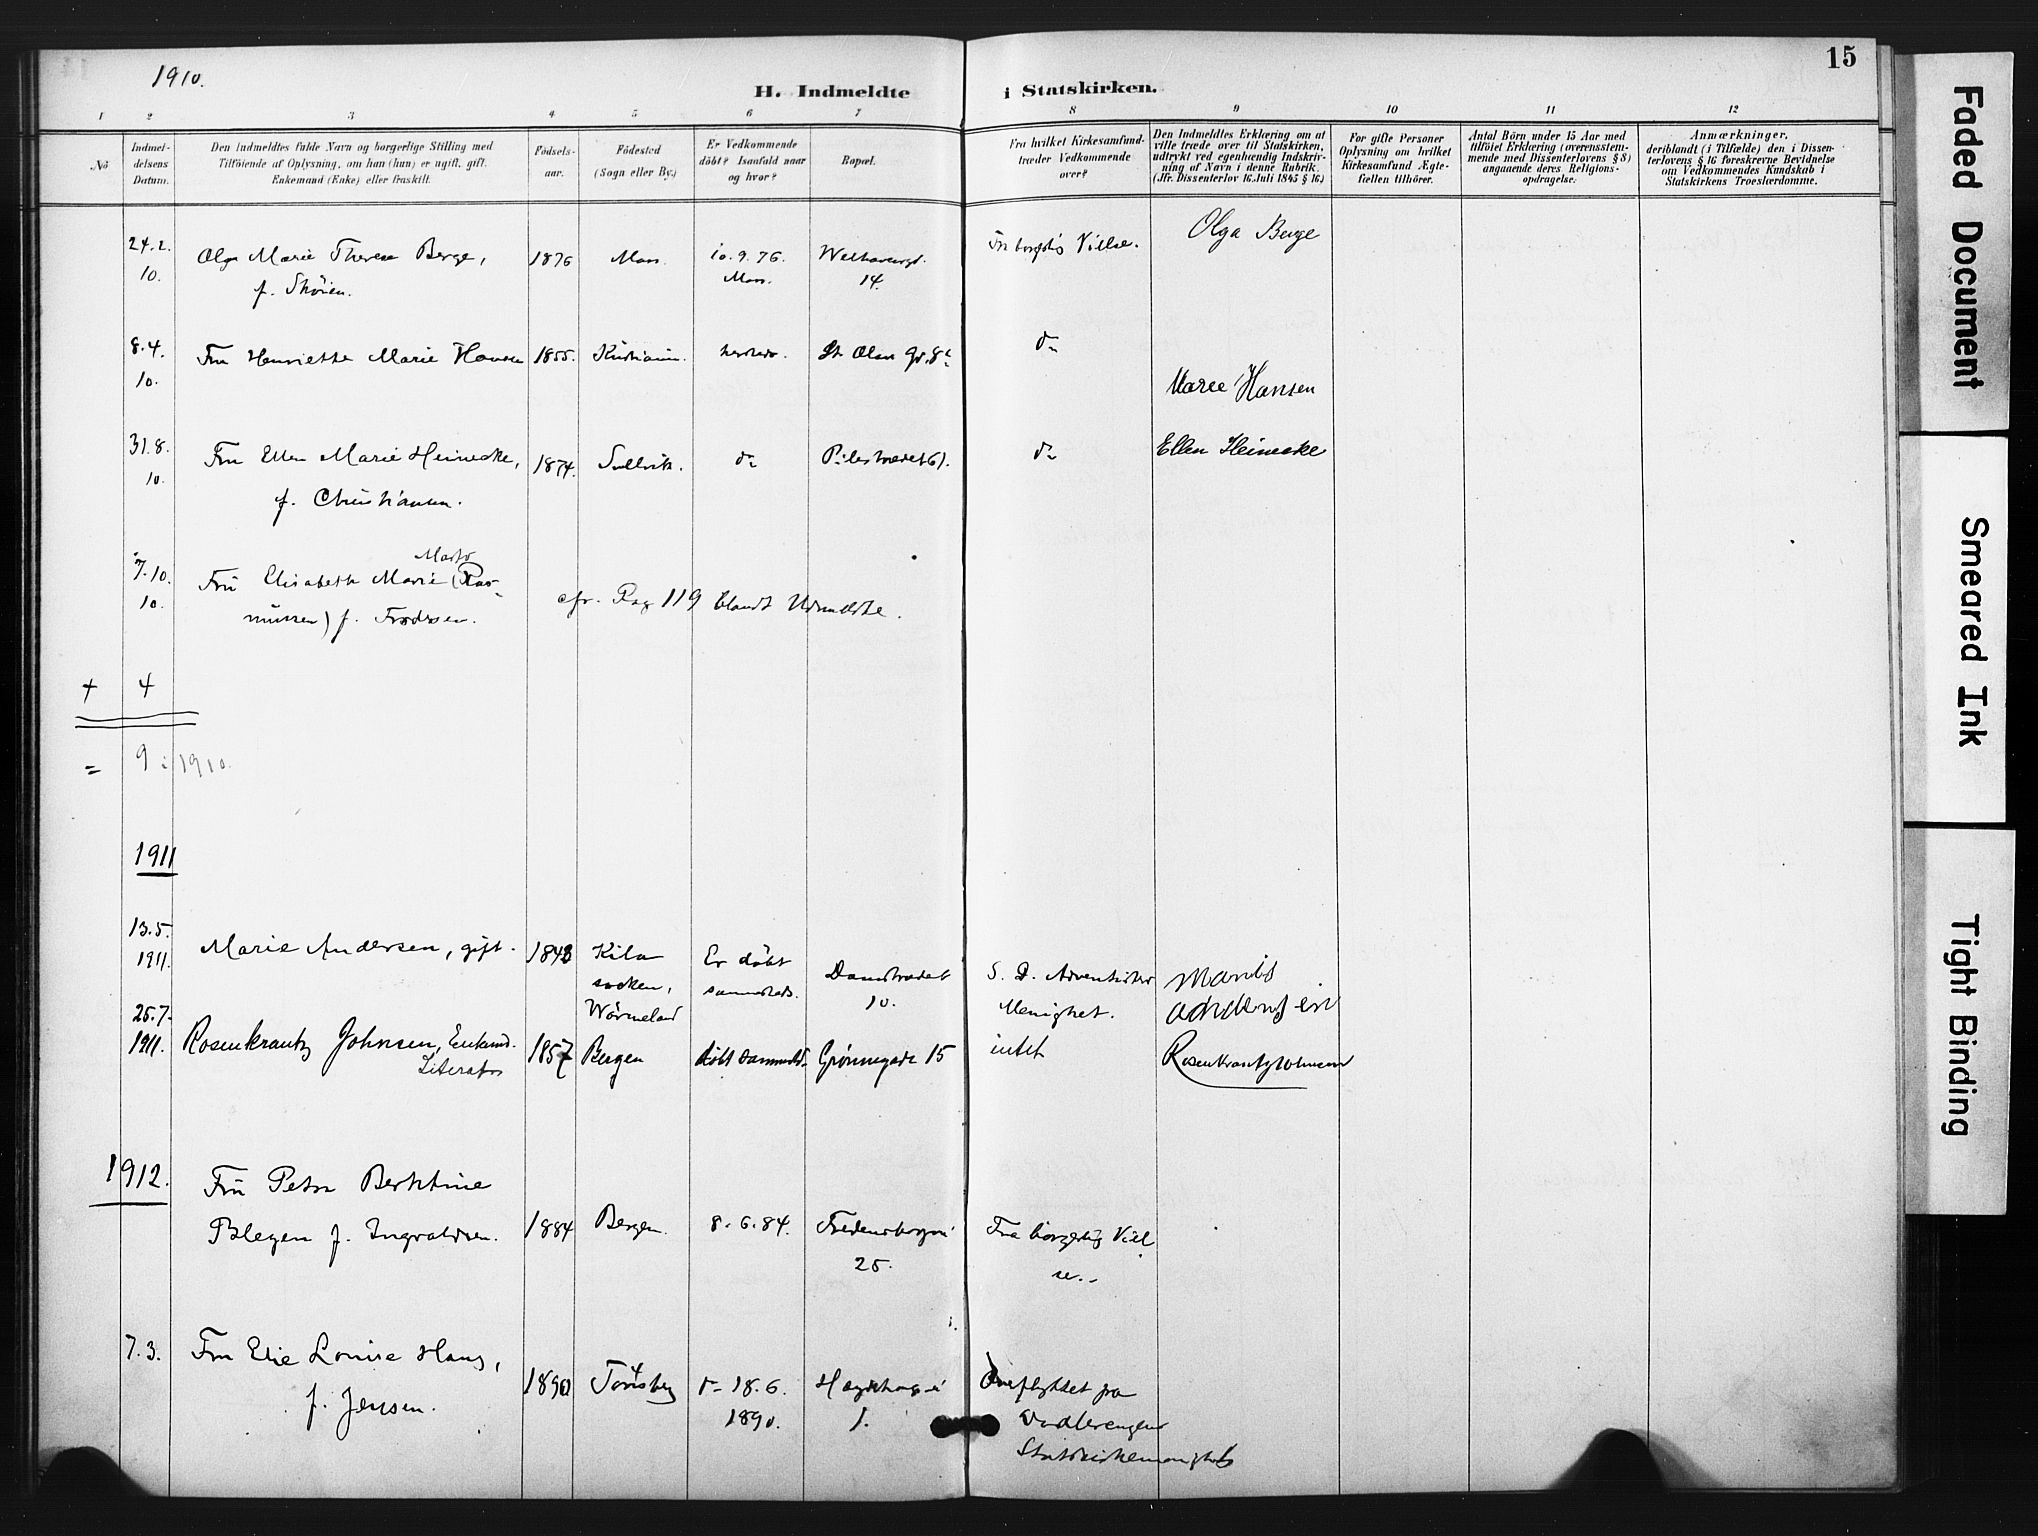 1910.
15
H. Indmeldte i Statskirken.
1 2 3 4 5 6 7 8 9 10 11 12
No
Indmel-
delsens
Datum.
Den Indmeldtes fulde Navn og borgerlige Stilling med
Tilföiende af Oplysning, om han (hun) er ugift, gift,
Enkemand (Enke) eller fraskilt.
Födsels-
aar.
Födested
(Sogn eller By.)
Er Vedkommende
döbt? Isaafald naar
og hvor?
Bopæl.
Fra hvilket Kirkesamfund
træder Vedkommende
over?
Den Indmeldtes Erklæring om at
ville træde over til Statskirken,
udtrykt ved egenhændig Indskriv-
ning af Navn i denne Rubrik.
(Jfr. Dissenterlov 16. Juli 1845 § 16.)
For gifte Personer
Oplysning om hvilket
Kirkesamfund Ægte-
fællen tilhörer.
Antal Börn under 15 Aar med
tilföiet Erklæring (overensstem-
mende med Dissenterlovens § 8)
angaaende deres Religions-
opdragelse.
Anmærkninger,
deriblandt (i Tilfælde) den i Dissen-
terlovens § 16 foreskrevne Bevidnelse
om Vedkommendes Kundskab i
Statskirkens Troeslærdomme.
24.2.
10.
Olga Marie Therese Berge,
f. Sköien.
1876
Moss.
10.9.76.
Moss.
14.
Fra borgerlig Vielse.
Olga Berge
8.4.
10.
Fru Henriette Marie Hansen
1855.
Kristiania.
St Olavs Gd. 8
do
Marie Hansen
31.8.
10.
Fru Ellen Marie Heinecke,
f. Christiansen.
1874.
do
Pilestrædet 61.
do
Ellen Heinecke
7.10.
10.
Fru Elisabeth Marie (Ras-
mussen) f. Frodesen.
cfr. Pag 119 blandt Udmeldte.
+ 4
= 9 i 1910.
1911
13.5.
1911.
Marie Andersen, gift.
1848
Kila
socken,
Wärmeland
Er döbt
sammesteds.
Damstrædet
10.
S. D. Adventister
Menighet.
Marie
Andersen
25.7.
1911.
Rosenkrantz Johnsen, Enkemd.
Literat
1857
Bergen
döbt sammesteds
Grønnegade 15
intet
Rosenkrantz Johnsen
1912.
Fru Petra Berktine
Blegen f. Ingvaldsen.
1884
Bergen.
8.6.84.
25.
Fra borgerlig Viel
se.
7.3.
Fru Elie Louise Haug,
f. Jensen.
1890
Tönsberg
do 18.6.
1890.
1.
Overflyttet fra
Vaalerengens
Statskirkemenighet
Faded Document
Smeared Ink
Tight Binding